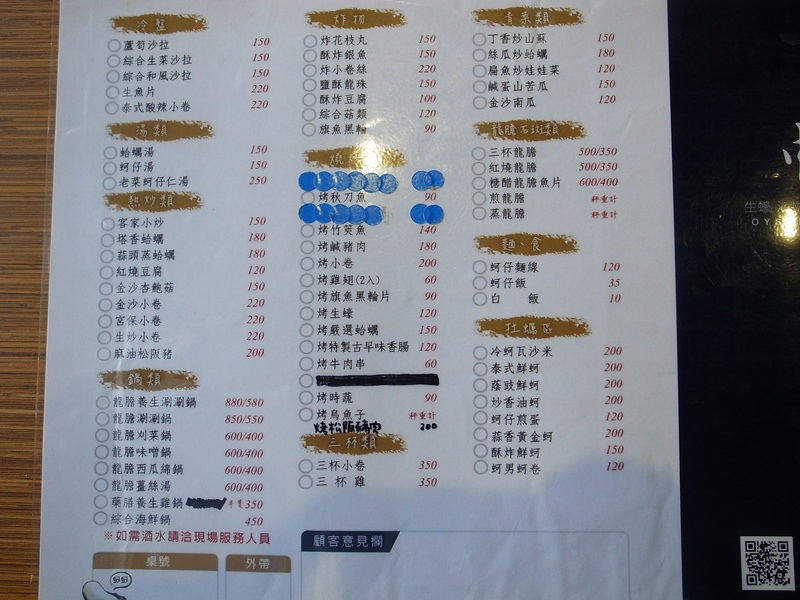 冷盤
蘆筍沙拉 150
綜合生菜沙拉 150
綜合和風沙拉 150
生魚片 220
泰式酸辣小卷 220
湯類
蛤蠣湯 150
蚵仔湯 150
老菜蚵仔仁湯 250
熱炒類
客家小炒 150
塔香蛤蠣 180
蒜頭蒸蛤蠣 180
紅燒豆腐 120
金沙杏鮑菇 150
金沙小卷 220
宮保小卷 220
生炒小卷 220
麻油松阪豬 200
鍋類
龍膽養生涮涮鍋 880/580
龍膽涮涮鍋 850/550
龍膽刈菜鍋 600/400
龍膽味噌鍋 600/400
龍膽西瓜綿鍋 600/400
龍膽薑絲湯 600/400
藥膳養生雞鍋 半隻350
綜合海鮮鍋 450
※如需酒水請洽現場服務人員
桌號
外帶
炸物
炸花枝丸 150
酥炸銀魚 150
炸小卷絲 220
鹽酥龍珠 150
酥炸豆腐 100
綜合菇類 120
旗魚黑輪 90
燒
烤秋刀魚 90
烤竹筴魚 140
烤鹹豬肉 180
烤小卷 200
烤雞翅(2入) 60
烤旗魚黑輪片 90
烤生蠔 120
烤嚴選蛤蠣 150
烤特製古早味香腸 120
烤牛肉串 60
烤時蔬 90
烤烏魚子 秤重計
烤松阪豬肉 200
三杯類
三杯小卷 350
三杯雞 350
顧客意見欄
青菜類
丁香炒山蘇 150
絲瓜炒蛤蠣 180
扁魚炒娃娃菜 120
鹹蛋山苦瓜 150
金沙南瓜 120
龍膽石斑類
三杯龍膽 500/350
紅燒龍膽 500/350
糖醋龍膽魚片 600/400
煎龍膽 秤重計
蒸龍膽 秤重計
麵、食
蚵仔麵線 120
蚵仔飯 35
白飯 10
牡蠣區
冷蚵瓦沙米 200
泰式鮮蚵 200
蔭豉鮮蚵 200
炒香油蚵 200
蚵仔煎蛋 120
蒜香黃金蚵 200
酥炸鮮蚵 150
蚵男蚵卷 120
生蠔
OY